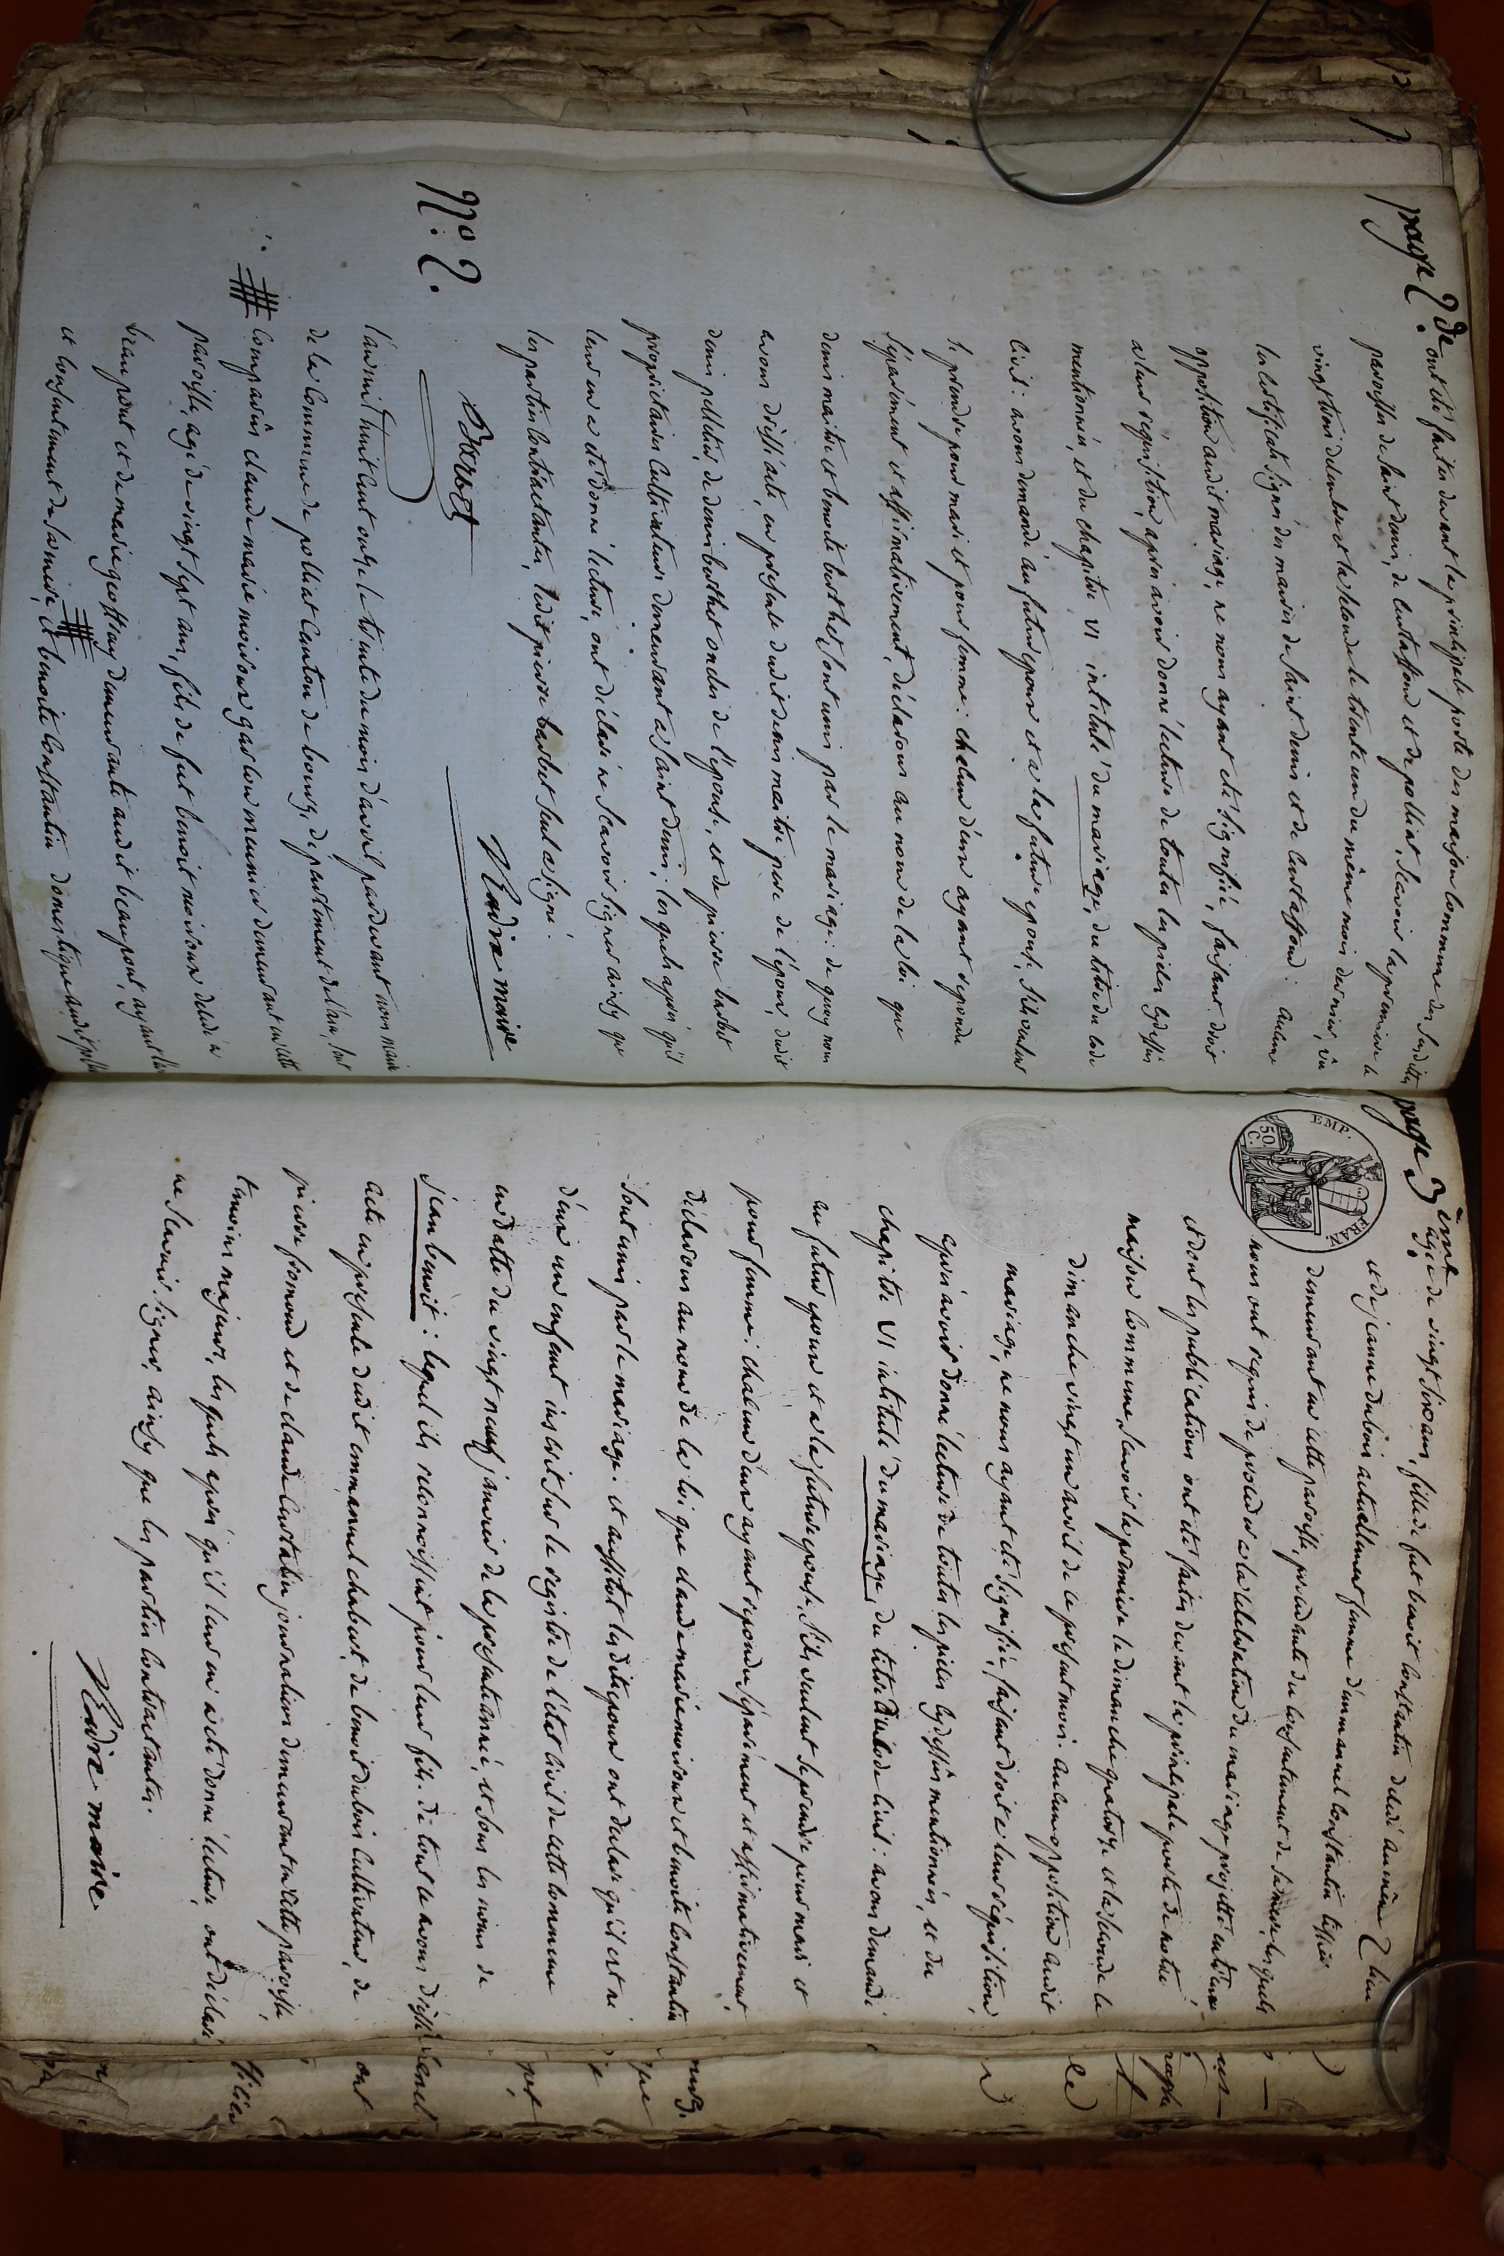 page 2de.
ont été faites devant la principale porte des maison commune des susdittes
paroisses de Saint denis, de Curtaffond et de polliat, Scavoir la premiere le
vingt trois decembre et la seconde le trente un du même mois dernier, vu
les Certificats Signés des maires de Saint denis et de Curtaffond : aucune
opposition audit mariage, ne nous ayant été Signifiée, faisant droit
a leur réquisition, apres avoir donné lecture de toutes les pieces cydessus
mentionnées, et du chapitre VI intitulé du mariage, du titre du code
Civil : avons demandé au futur epoux et a la future epouse, S'ils veulent
se prendre pour mari et pour femme : chacun d'eux ayant repondu
séparément et affirmativement, déclarons au nom de la loi que
denis maitre et benoite berthet sont unis par le mariage : de quoy nous
avons dressé acte, en presence dudit denis maitre pere de l'epoux, dudit
denis pelletier, de denis berthet oncles de l'epouse, et de pierre barbet
proprietaires Cultivateurs demeurant a Saint denis ; les quels après qu'il
leur en a été donné lecture, ont déclaré ne Scavoir Signer ainsy que
les parties Contractantes, ledit pierre barbet seul a signé.
Barbet
maire
N.º 2.
L'an mil huit cent onze le trente du mois d'avril, pardevant nous maire
de la Commune de polliat Canton de bourg, département de l'ain, sont
Comparus claude marie moisson garcon meunier demeurant en cette
paroisse, agé de vingt sept ans, fils de feu benoit moisson décédé a
beaupont et de marie geoffray demeurante audit beaupont, ayant
et consentement de sa mere, et benoite Constantin domestique audit
page 3ème.
EMP. FRAN.
50. C.
agée de vingt six ans, fille de feu benoit Constantin décédé au même lieu
et de jeanne dubois actuellement femme d'emmanuel Constantin tissier
demeurant en cette paroisse, procedante du consentement de sa mere, les quels
nous ont requis de proceder a la celebration du mariage projetté entr'eux
et dont les publications ont été faites devant la principale porte de notre
maison commune, Scavoir la premiere le dimanche quatorze et la seconde le
dimanche vingt un avril de ce present mois. aucune opposition audit
mariage, ne nous ayant été Signifiée, faisant droit a leur réquisition,
apres avoir donné lecture de toutes les pieces cydessus mentionnées, et du
chapitre VI intitulé du mariage, du titre du code Civil : avons demandé
au futur epoux et a la future epouse, S'ils veulent se prendre pour mari et
pour femme : chacun d'eux ayant repondu séparément et affirmativement,
déclarons au nom de la loi que claude marie moisson et benoite Constantin
sont unis par le mariage. et aussitot lesdits epoux ont declaré qu'il est né
d'eux un enfant inscrit sur le registre de l'état civil de cette commune
en datte du vingt neuf janvier de la presente année, et sous les noms de
jean benoit : lequel ils reconnoissent pour leur fils. de tout ce avons dressé
acte en presence dudit emmanuel chabert, de benoit dubois cultivateur, de
pierre fromond et de claude Constantin journaliers demeurant en cette paroisse,
temoins majeurs, les quels après qu'il leur en a été donné lecture, ont déclaré
ne Scavoir Signer, ainsy que les parties Contractantes.
maire